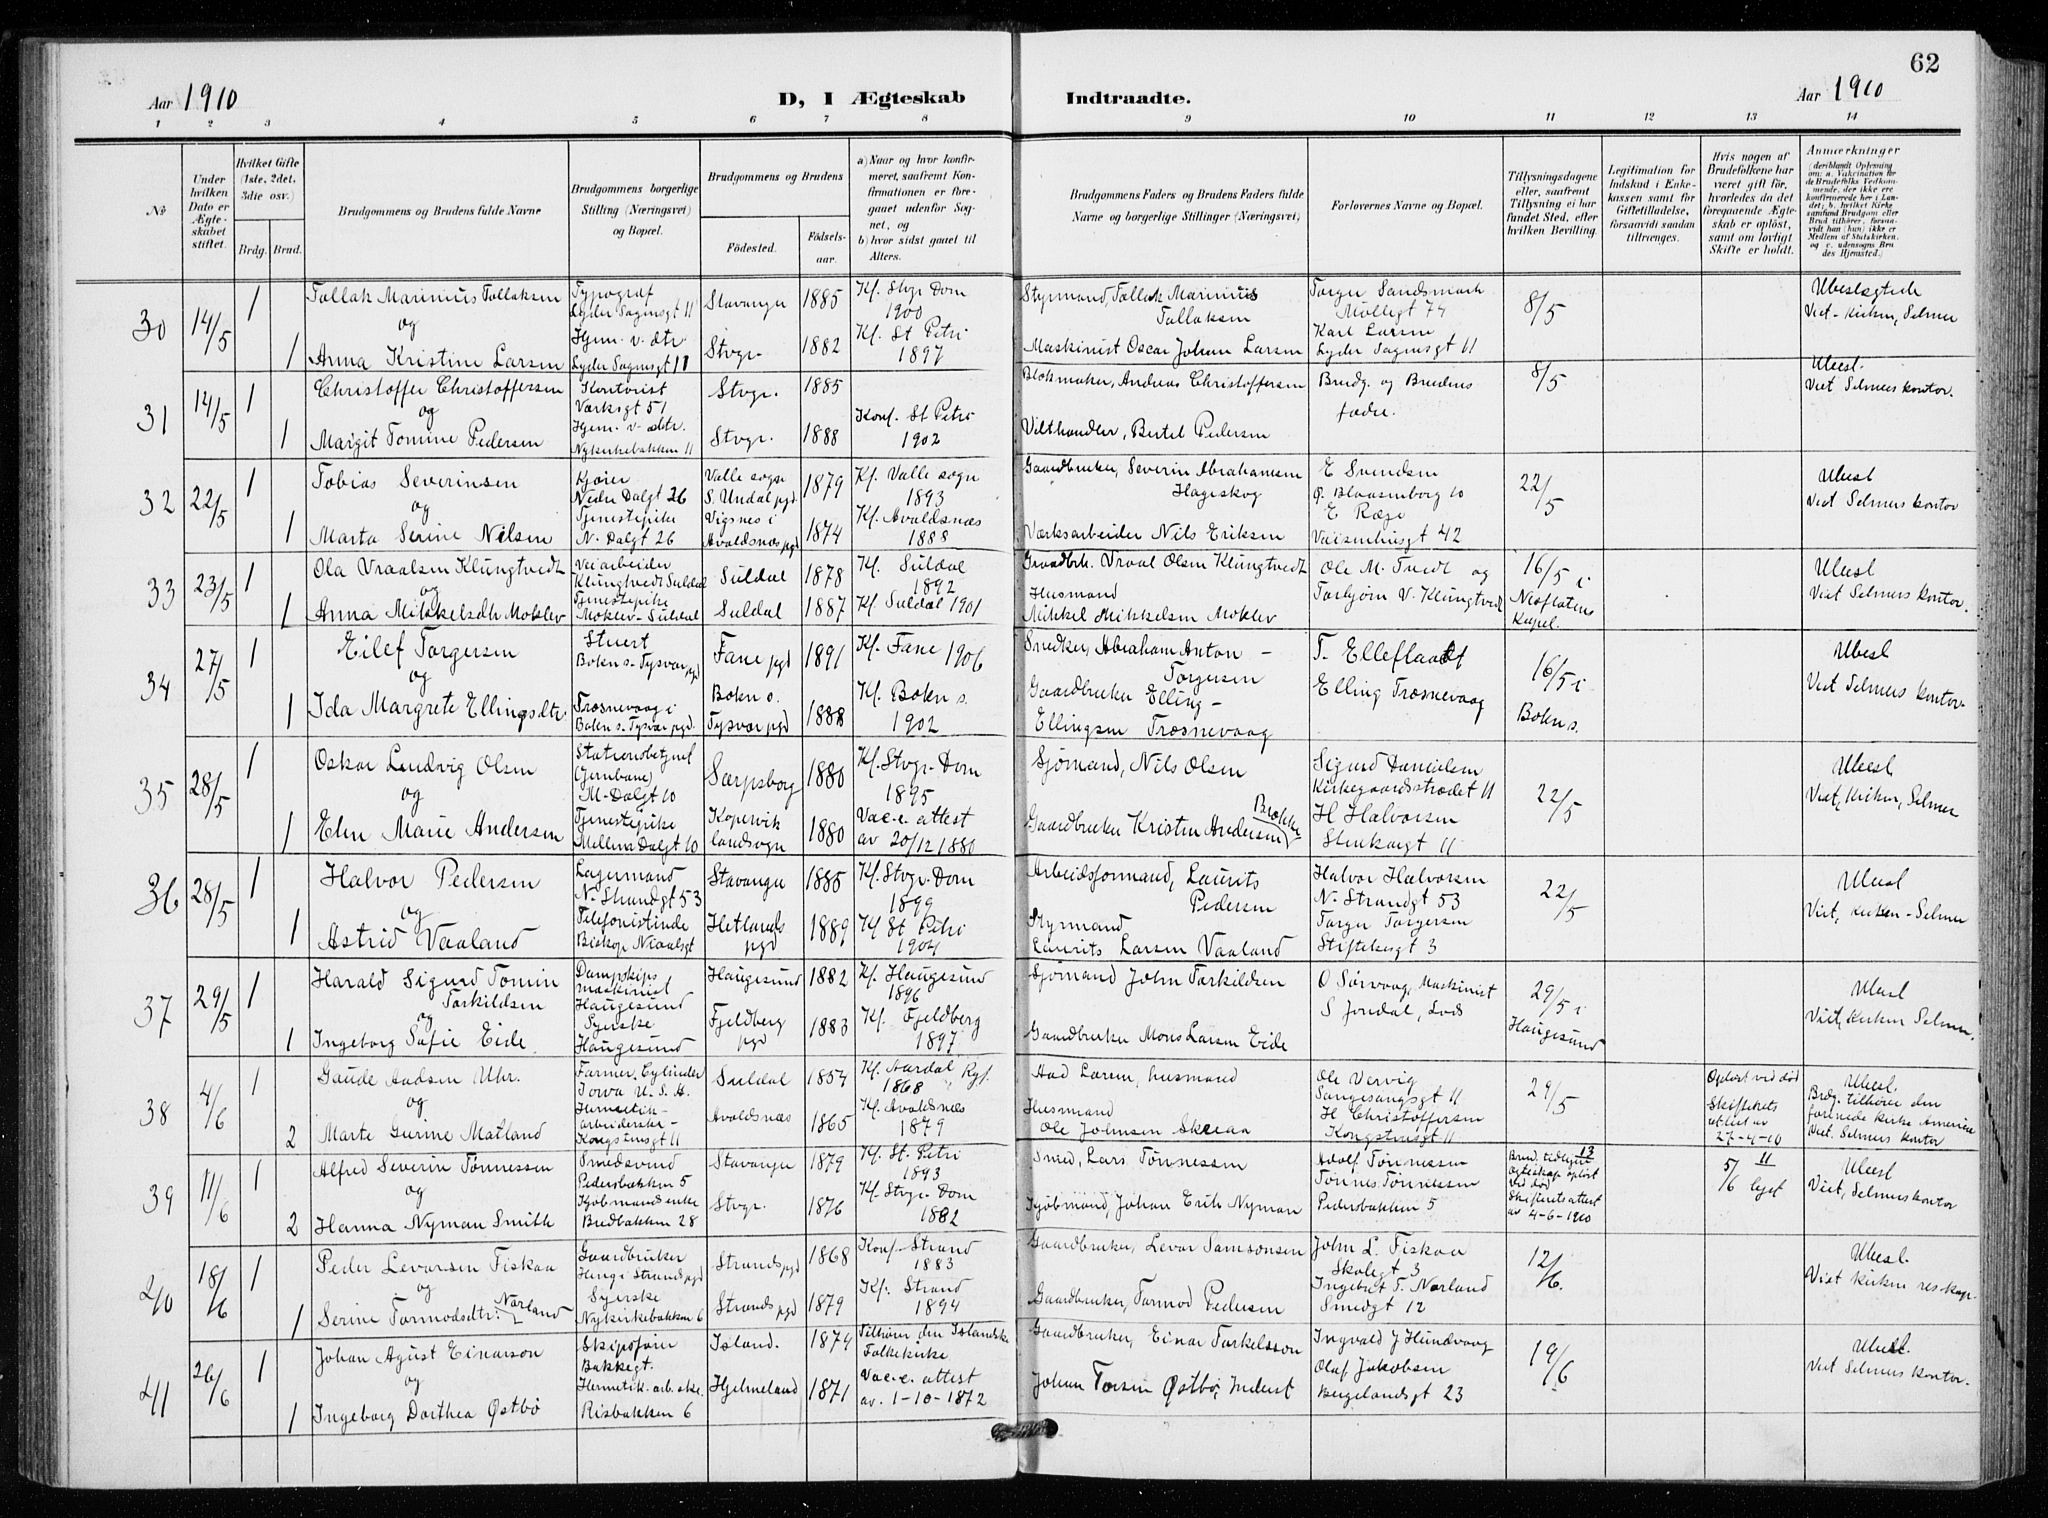 62
Aar 1910
D, I Ægteskab Indtraadte.
Aar 1910
1 2 3 4 5 6 7 8 9 10 11 12 13 14
No
Under hvilken Dato er Ægteskabet stiftet.
Hvilket Gifte (1ste, 2det, 3die osv.)
Brdg. Brud.
Brudgommens og Brudens fulde Navne
Brudgommens borgerlige Stilling (Næringsvei) og Bopæl.
Brudgommens og Brudens
Fødested.
Fødselsaar.
a) Naar og hvor konfirmeret, saafremt Konfirmationen er foregaaet udenfor Sognet, og
b) hvor sidst gaaet til Alters.
Brudgommens Faders og Brudens Faders fulde Navne og borgerlige Stillinger (Næringsvei)
Forlovernes Navne og Bopæl.
Tillysningsdagene eller, saafremt Tillysning ei har fundet Sted, efter hvilken Bevilling.
Legitimation for Indskud i Enkekassen samt for Giftetilladelse, forsaavidt saadan tiltrænges.
Hvis nogen af Brudefolkene har været gift før, hvorledes da det foregaaende Ægteskab er opløst, samt om lovligt Skifte er holdt.
Anmærkninger
(deriblandt Oplysning om: a. Vakcination for de Brudefolks Vedkommende, der ikke ere konfirmerede her i Landet; b. hvilket Kirkesamfund Brudgom eller Brud tilhører, forsaavidt han (hun) ikke er Medlem af Statskirken, og c. udensogns Brudes Hjemsted.)
30 14/5 1
Tollak Marinius Tollaksen
og
1 Anna Kristine Larsen
Typograf
Lyder Sagensgt 11
Hjem. v. dtr
Lyder Sagensgt 11
Stavanger 1885
Stvgr. 1882
Kf. Stvgr Dom
1900
Kf. St Petri
1897
Styrmand, Tollak Marinius
Tollaksen
Maskinist Oscar Johan Larsen
Torger Sandsmark
Møllegt 74
Karl Larsen
Lyder Sagensgt 11
8/5
Ubeslægtede
Viet - kirken, Selmer
31 14/5 1
Christoffer Christoffersen
og
1 Margit Tomine Pedersen
Kontorist
Verksgt 51
Hjem. v. dtr.
Nykirkebakken 11
Stvgr. 1885
Stvgr. 1888
Konf. St Petri
1902
Blokmaker, Andreas Christoffersen
Vilthandler, Bertel Pedersen
Brudg. og Brudens
fædre.
8/5
Ubesl.
Viet Selmers kontor.
32 22/5 1
Tobias Severinsen
og
1 Marta Serine Nilsen
Kjører
Nedre Dalgt 26
Tjenestepike
N. Dalgt 26
Valle sogn
S. Undal pgd 1879
Vigsnes i
Avaldsnes pgd 1874
Kf. Valle sogn
1893
Kf. Avaldsnæs
1888
Gaardbruker, Severin Abrahamsen
Hageskog
Værksarbeider Nils Eriksen
E Svendsen
Ø. Blaasenborg 10
E Ræge
Vaisenhusgt 42
22/5
Ubesl
Viet Selmers kontor
33 23/5 1
Ola Vraalsen Klungtvedt
og
1 Anna Mikkelsdtr Moklev
Veiarbeider
Klungtvedt Suldal
Tjenestepike
Moklev - Suldal
Suldal 1878
Suldal 1887
Kf. Suldal
1892
Kf Suldal 1901
Gaardbrk. Vraal Olsen Klungtvedt
Husmand
Mikkel Mikkelsen Moklev
Ole M. Tvedt og
Torbjørn V. Klungtvedt
16/5 i
Nesflatens
Kapel.
Ubesl
Viet Selmers kontor.
34 27/5 1
Eilef Torgersen
og
1 Ida Margrete Ellingsdtr.
Stuert
Bokn s. Tysvær pgd
Trosnevaag i
Bokn s. Tysvær pgd.
Fane pgd 1891
Bokn s.
Tysvær pgd 1888
Kf. Fane 1906
Kf. Bokn s.
1902
Snedker, Abraham Anton -
Torgersen
Gaardbruker Elling -
Ellingsen Trosnevaag
T. Elleflaadt
Elling Trosnevaag
16/5 i
Bokn s.
Ubesl
Viet Selmers kontor.
35 28/5 1
Oskar Ludvig Olsen
og
1 Elen Marie Andersen
Stationsbetjent
(Jernbane)
M. Dalgt 10
Tjenestepike
Mellem Dalgt 10
Sarpsborg 1880
Kopervik
landsogn 1880
Kf. Stvgr. Dom
1895
Vac.c. attest
av 20/12 1880
Sjømand, Nils Olsen
Gaardbruker Kristen Andersen Brekke
Sigurd Danielsen
Kirkegaardsstrædet 11
H Halvorsen
Stenkargt 11
22/5
Ubesl
Viet, kirken, Selmer
36 28/5 1
Halvor Pedersen
og
1 Astrid Vaaland
Lagermand
N. Strandgt 53
Telefonistinde
Biskop Nicolaisgt
Stavanger 1885
Hetlands
pgd 1889
Kf. Stvgr. Dom
1899
Kf St. Petri
1904
Arbeidsformand, Laurits
Pedersen
Styrmand
Laurits Larsen Vaaland
Halvor Halvorsen
N. Strandgt 53
Torger Torgersen
Stiftelsesgt 3
22/5
Ubesl
Viet, kirken - Selmer
37 29/5 1
Harald Sigurd Tomin
Torkildsen
og
1 Ingeborg Sofie Eide.
Dampskips
maskinist
Haugesund
Syerske
Haugesund
Haugesund 1882
Fjeldberg
pgd 1883
Kf. Haugesund
1896
Kf. Fjeldberg
1897
Sjømand John Torkildsen
Gaardbruker Mons Larsen Eide
O Sørvaag, Maskinist
S Jondal, Lods
29/5 i
Haugesund
Ubesl
Viet, kirken Selmer.
38 4/6 1
Gaude Aadsen Uhr.
og
2 Marte Gurine Matland
Farmer, Cylinder
Iowa U. S. A.
Hermetik-
arbeiderske -
Kongstensgt 11
Suldal 1854
Avaldsnæs 1865
Kf. Aardal Ryf.
1868
Kf. Avaldsnæs
1879
Aad Larsen, husmand
Husmand
Ole Johnsen Skeiaa
Ole Vervig
Sangesangsgt 11
H Christoffersen
Kongstensgt 11
29/5
Opløst ved død
Skifterets
attest av
27-4-10
Ubesl.
Brdg. tilhører den
forenede kirke Amerika
Viet. Selmers kontor
39 11/6 1
Alfred Severin Tønnessen
og
2 Hanna Nyman Smith
Smedsvend
Pedersbakken 5
Kjøbmandsenke
Bredbakken 28
Stavanger 1879
Stvgr. 1876
Kf. St. Petri
1893
Kf. Stvgr. Dom
1892
Smed, Lars Tønnessen
Kjøbmand, Johan Erik Nyman
Adolf Tønnessen
Tønnes Tønnessen
Pedersbakken 5
13
Brud. tidligere
egteskap opløst
ved død
Skifterets attest
av 4-6-1910
11
5/6 lyst
Ubesl
Viet, Selmers kontor
40 18/6 1
Peder Levorsen Fiskaa
og
1 Serine Tormodsdtr. Norland
Gaardbruker
Heng i Strands pgd
Syerske
Nykirkebakken 6
Strands pgd 1868
Strands pgd 1879
Konf. Strand
1883
Kf. Strand
1894
Gaardbruker, Levor Samsonsen
Gaardbruker, Tormod Pedersen
John L. Fiskaa
Skolegt 3
Ingebret T. Norland
Smedgt 12
12/6.
Ubesl.
Viet kirken res. kap.
41 26/6 1
Johan Agust Einarson
og
1 Ingeborg Dorthea Østbø
Skipsfører
Bakkegt.
Hermetik. arb. ske.
Risbakken 6
Island. 1874
Hjelmeland 1871
Tilhører den Islandske
Folkekirke
Vac.c. attest
av. 1-10-1872
Gaardbruker, Einar Torkelsson
Johan Torsen Østbø, Inderst
Ingvald J Hundvaag
Olaf Jakobsen
Bergelandsgt 23
19/6
Ubesl.
Viet Selmers kontor.